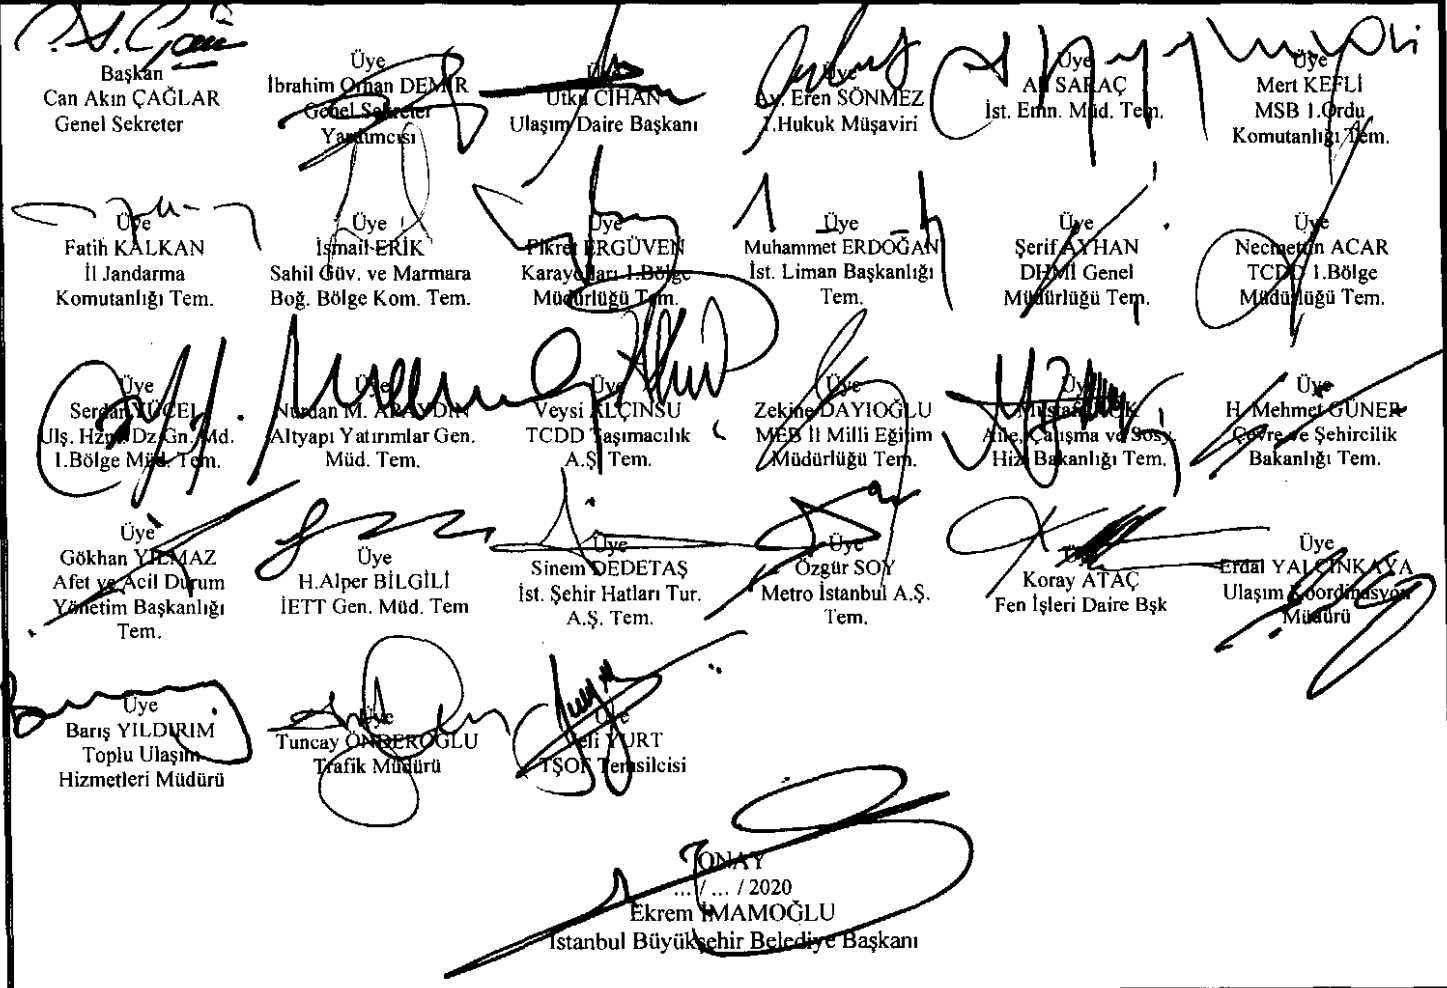 Başkan
Can Akın ÇAĞLAR
Genel Sekreter
Üye
İbrahim Orhan DEMİR
Genel Sekreter
Yardımcısı
Utku CİHAN
Ulaşım Daire Başkanı
Üye
Av. Eren SÖNMEZ
1.Hukuk Müşaviri
Üye
Ali SARAÇ
İst. Emn. Müd. Tem.
Üye
Mert KEFLİ
MSB 1.Ordu
Komutanlığı Tem.
Üye
Fatih KALKAN
İl Jandarma
Komutanlığı Tem.
Üye
İsmail ERİK
Sahil Güv. ve Marmara
Boğ. Bölge Kom. Tem.
Üye
Fikret ERGÜVEN
Karayolları 1.Bölge
Müdürlüğü Tem.
Üye
Muhammet ERDOĞAN
İst. Liman Başkanlığı
Tem.
Üye
Şerif AYHAN
DHMİ Genel
Müdürlüğü Tem.
Üye
Necmettin ACAR
TCDD 1.Bölge
Müdürlüğü Tem.
Üye
Serdar YÜCEL
Ulş. Hzm. Dz. Gn. Md.
1.Bölge Müd. Tem.
Üye
Nurdan M. APAYDIN
Altyapı Yatırımlar Gen.
Müd. Tem.
Üye
Veysi ALÇINSU
TCDD Taşımacılık
A.Ş Tem.
Üye
Zekine DAYIOĞLU
MEB İl Milli Eğitim
Müdürlüğü Tem.
Üye
Aile, Çalışma ve Sosy.
Hiz. Bakanlığı Tem.
Üye
H. Mehmet GÜNER
Çevre ve Şehircilik
Bakanlığı Tem.
Üye
Gökhan YILMAZ
Afet ve Acil Durum
Yönetim Başkanlığı
Tem.
Üye
H.Alper BİLGİLİ
İETT Gen. Müd. Tem
Üye
Sinem DEDETAŞ
İst. Şehir Hatları Tur.
A.Ş. Tem.
Üye
Özgür SOY
Metro İstanbul A.Ş.
Tem.
Üye
Koray ATAÇ
Fen İşleri Daire Bşk
Üye
Erdal YALÇINKAYA
Ulaşım Koordinasyon
Müdürü
Üye
Barış YILDIRIM
Toplu Ulaşım
Hizmetleri Müdürü
Üye
Tuncay ÖNDEROĞLU
Trafik Müdürü
Üye
Veli YURT
TŞOF Temsilcisi
ONAY
... / ... / 2020
Ekrem İMAMOĞLU
İstanbul Büyükşehir Belediye Başkanı